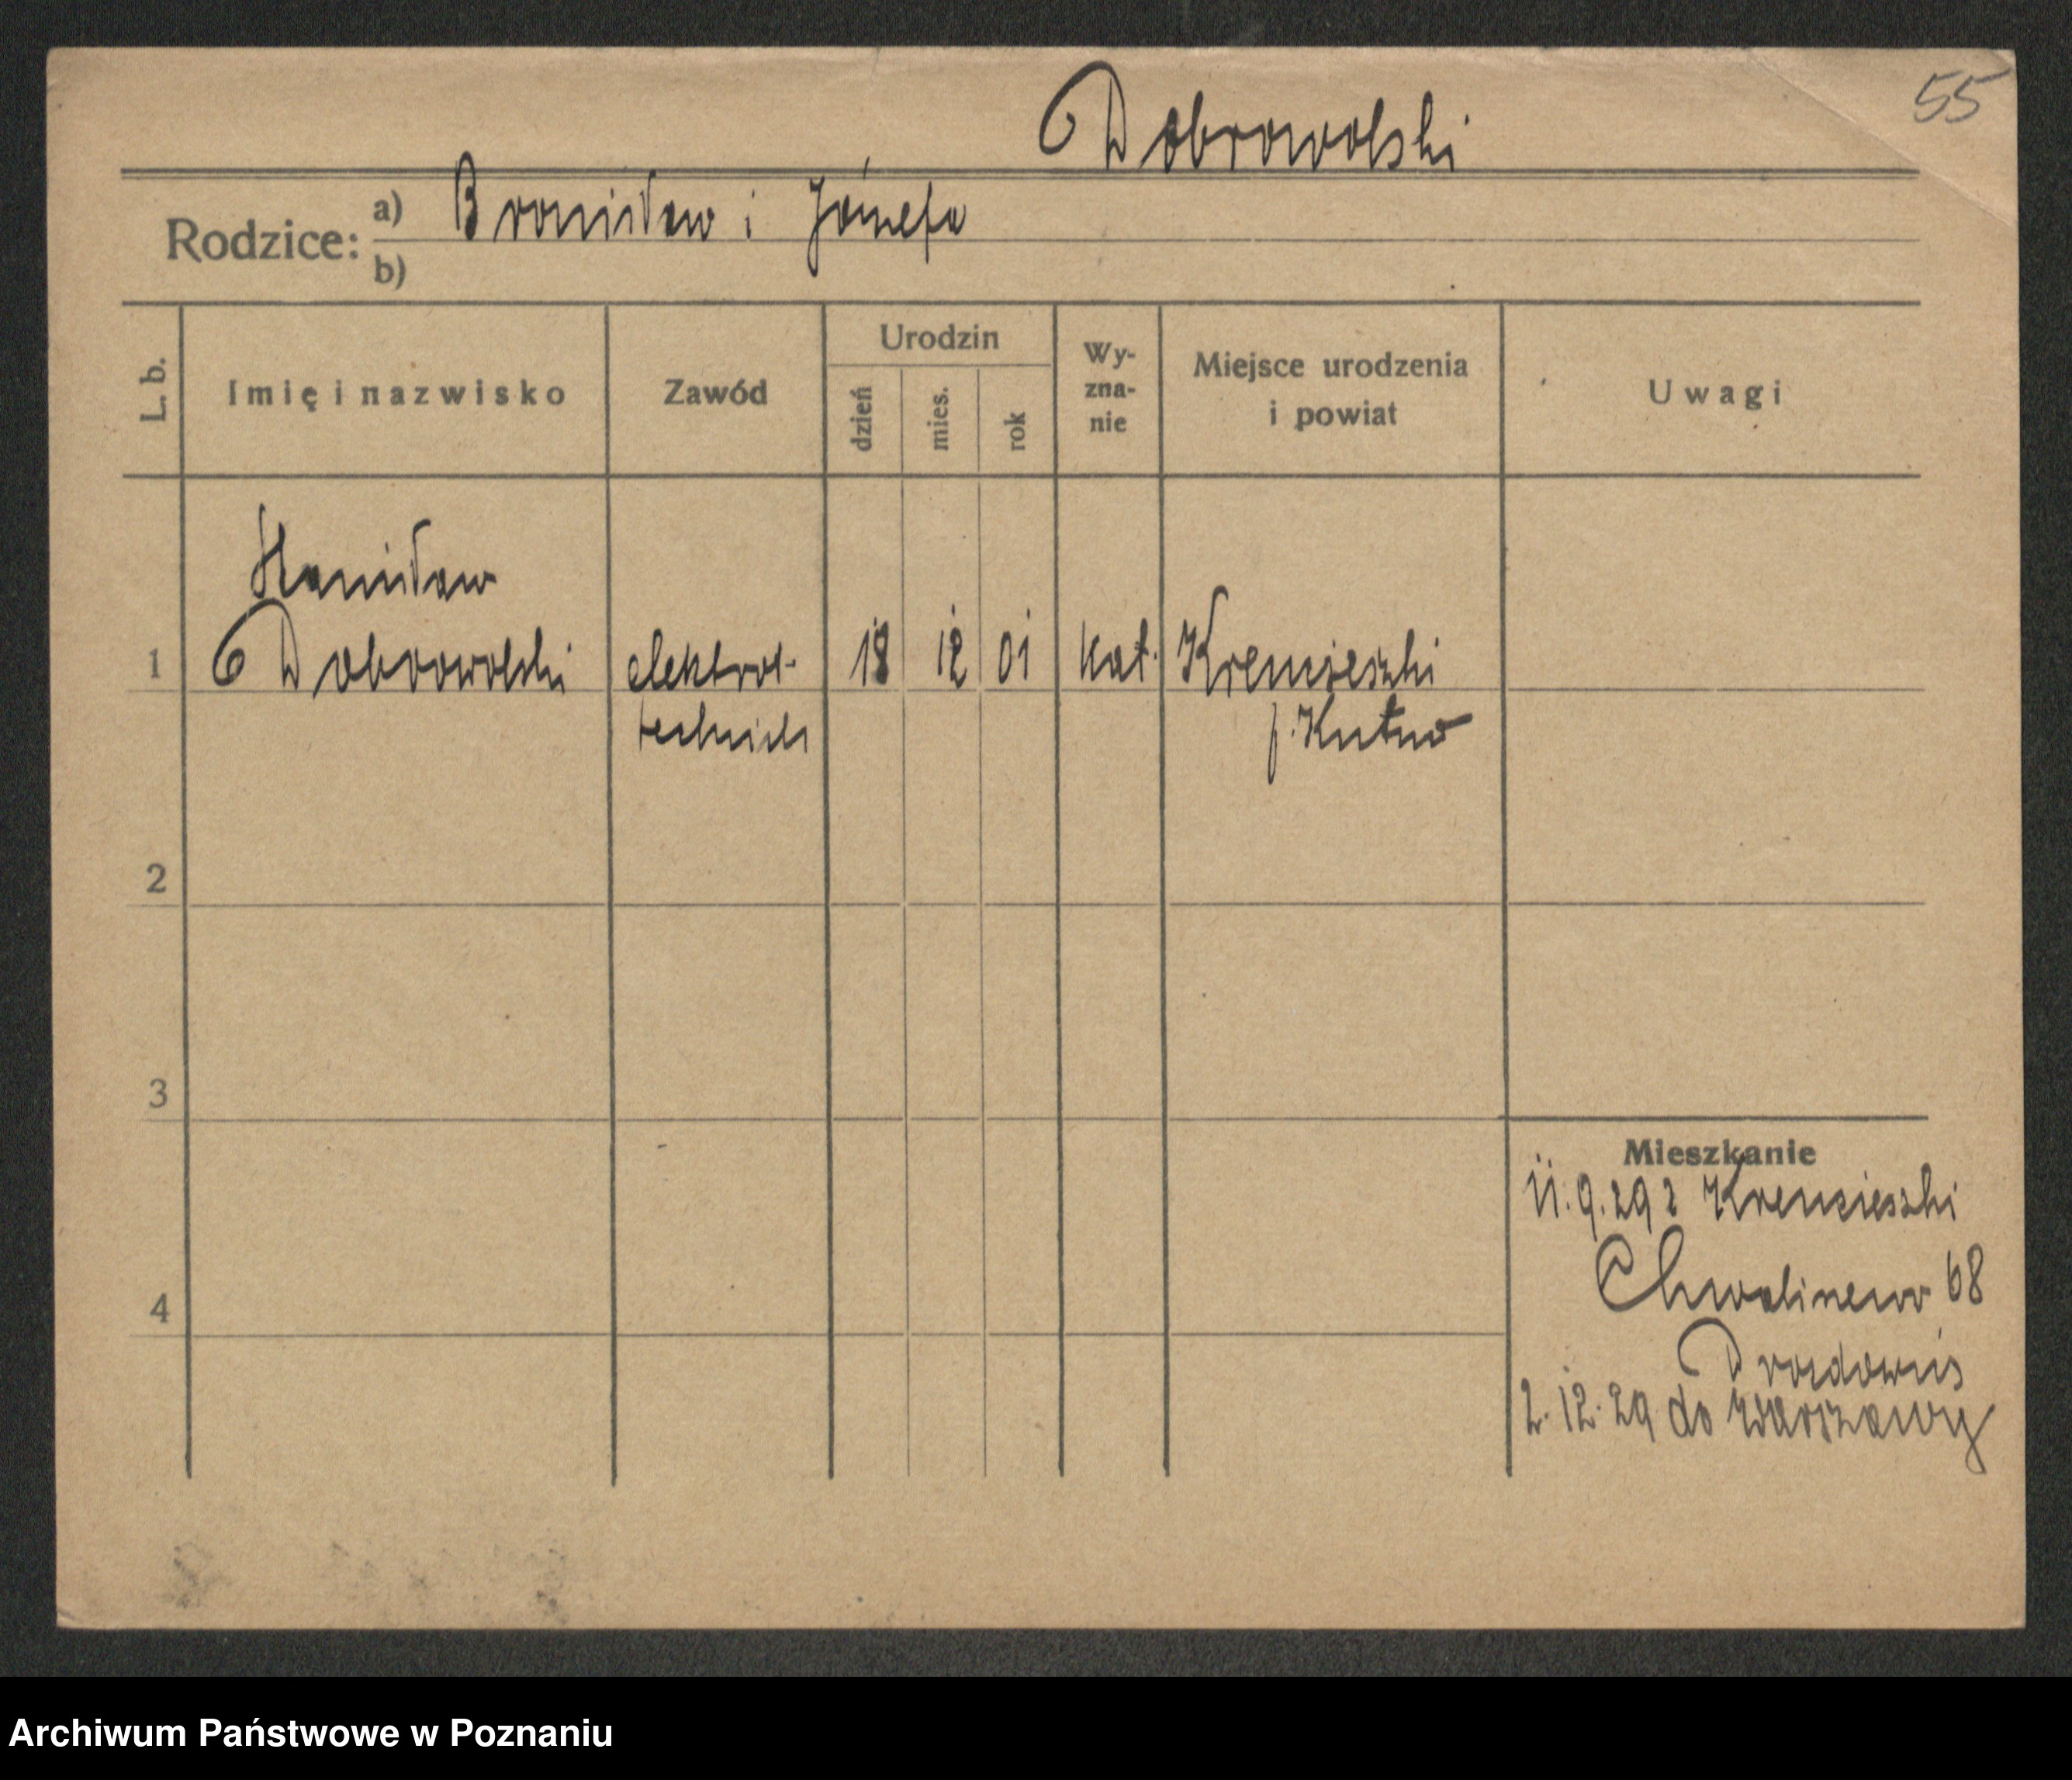 55
Dobrowolski
Rodzice: a) Bronisław i Józefa
b)
L. b.
Imię i nazwisko
Zawód
Urodzin
dzień
mies.
rok
Wy-
zna-
nie
Miejsce urodzenia
i powiat
Uwagi
Stanisław
1 Dobrowolski elektrot- 18 12 01 kat.
technik p. Kutno
2
3
4
Mieszkanie
11.9.29 z
Chwaliszewo 68
2.12.29 do Warszawy
Archiwum Państwowe w Poznaniu